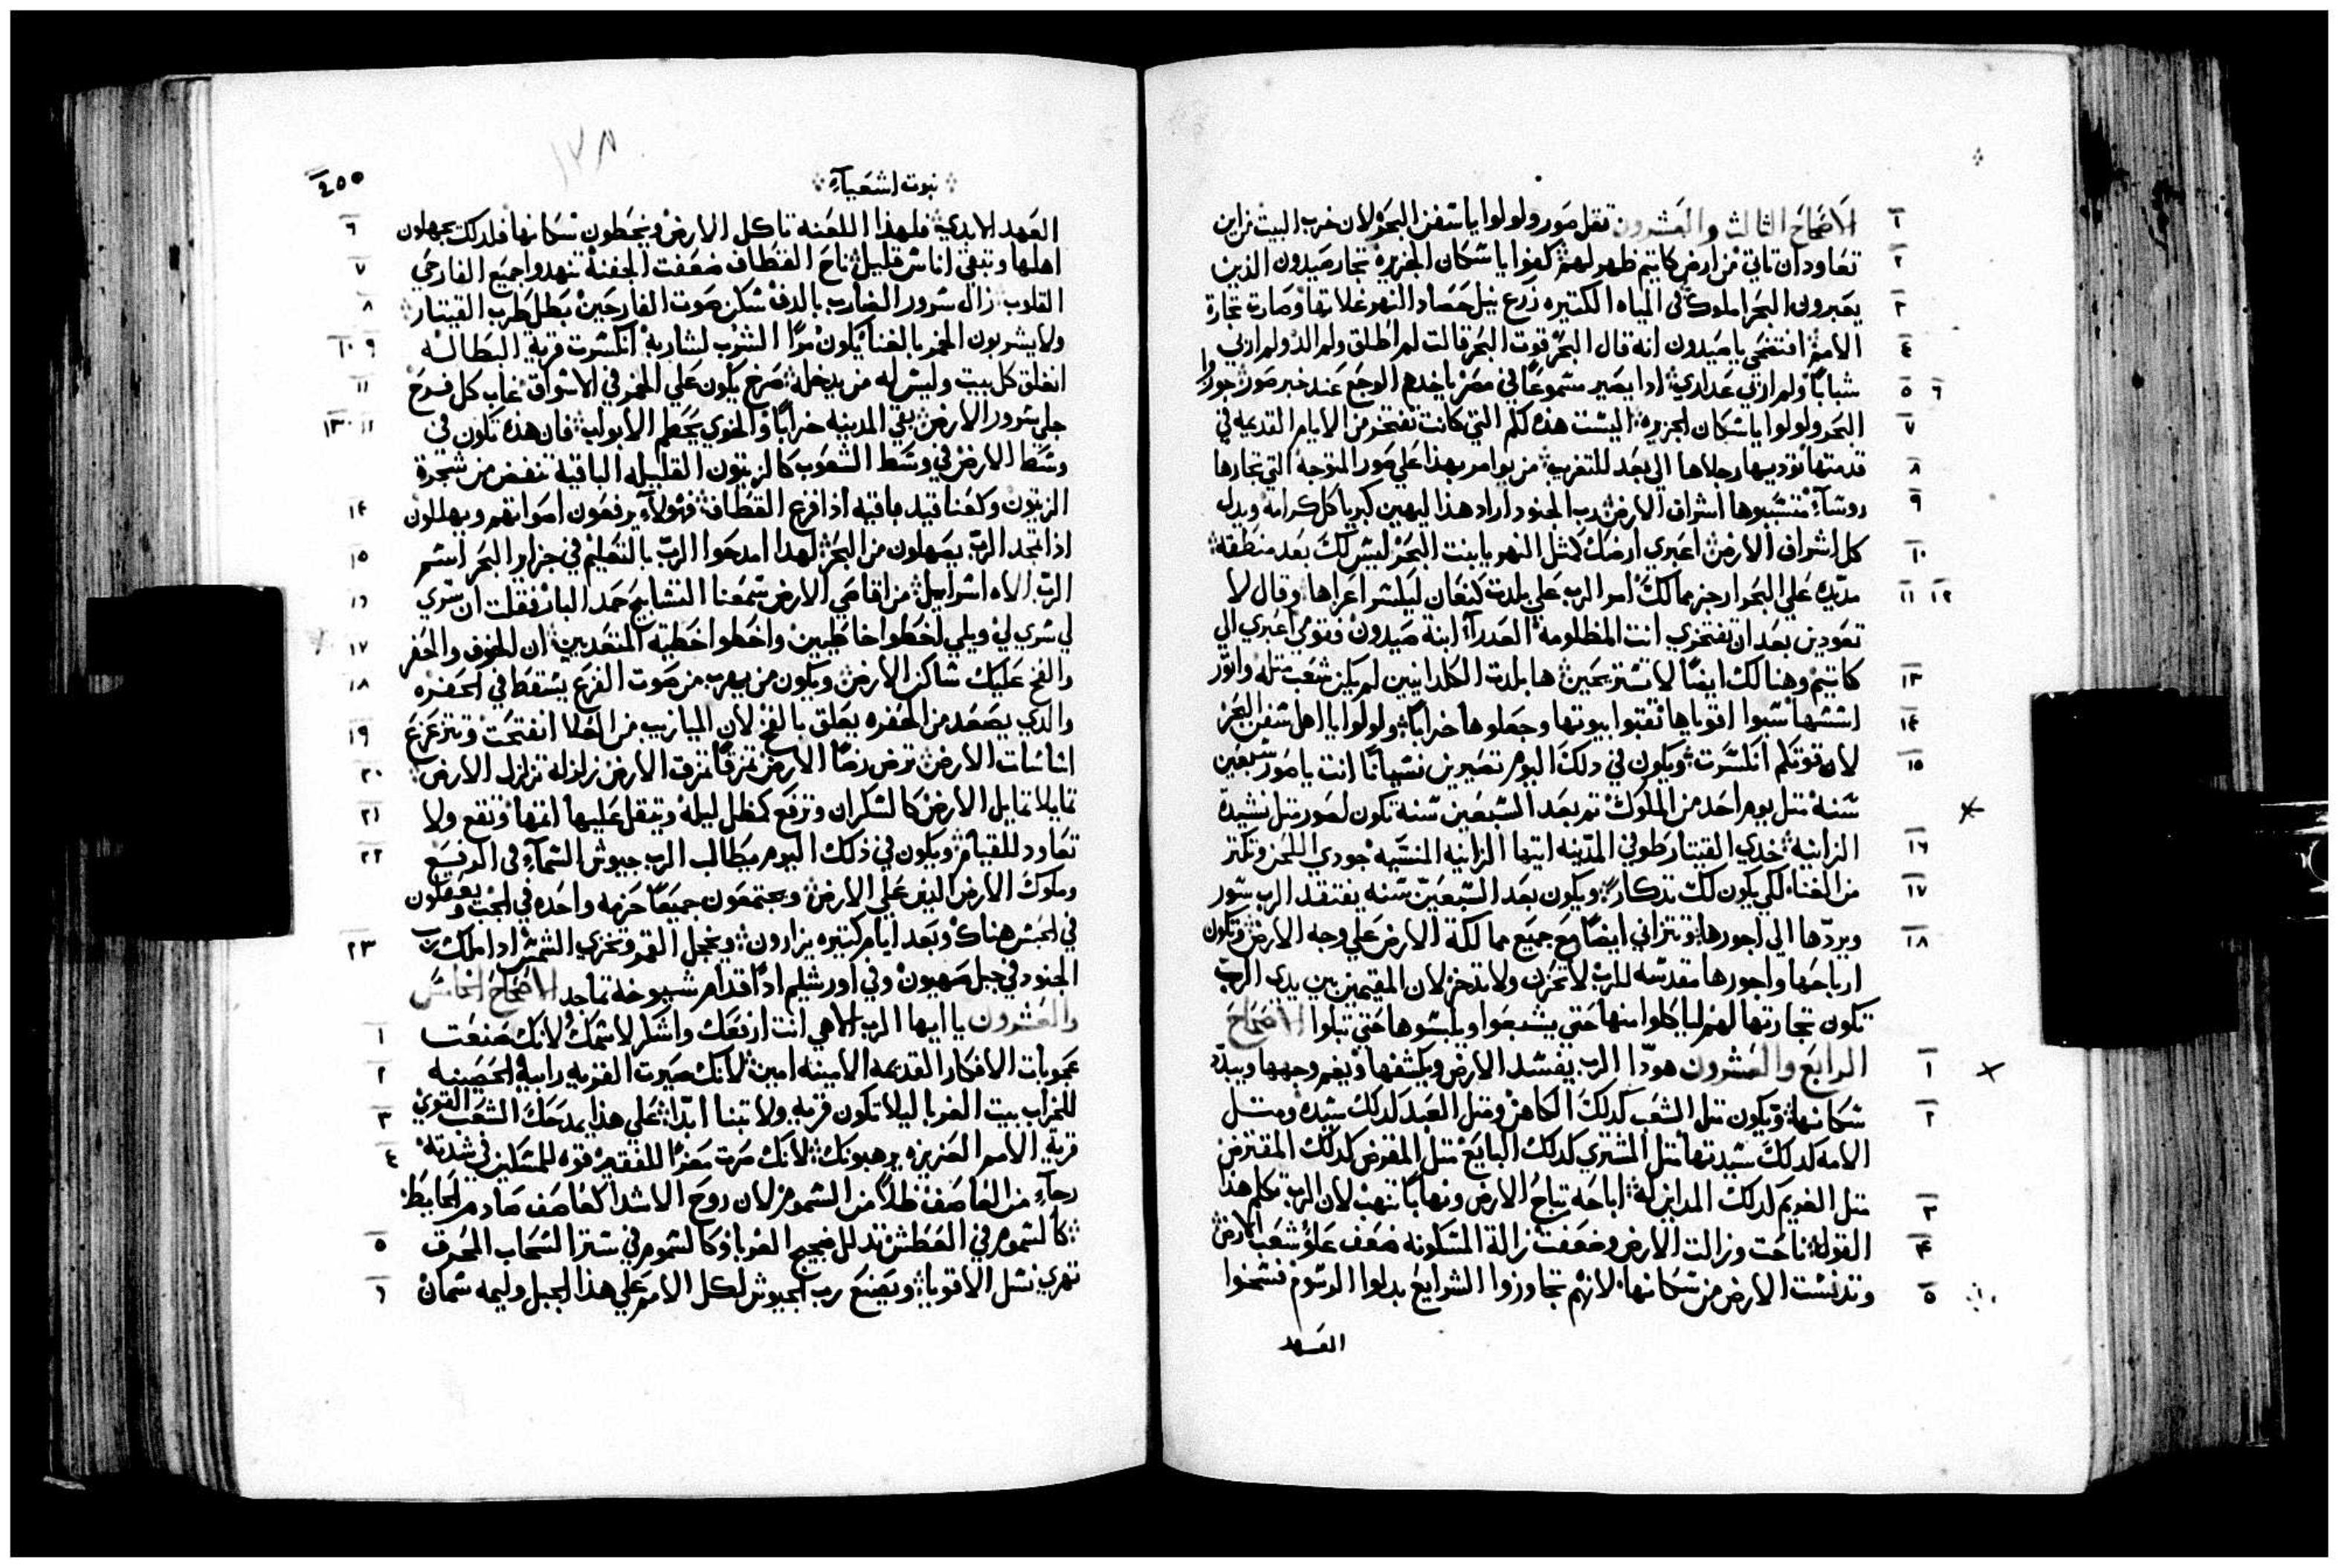 الاصحاح الثالث والعشرون ثقل صور ولولوا يا سفن البحر لان خرب البيت من اين
تعاود ان تاتي من ارض كاتيم ظهر لهم كفوا يا سكان الجزيره تجار صيدون الذين
يعبرون البحر املوك في المياه الكتيره زرع نيل حصاد النهر غلاتها وصارت تجارة
الامم افتضحي يا صيدون انه قال البحر قوت البحر قالت لم اطلق ولم الد ولم اربي
شبابًا ولم اربي عداري ادا يصير مسموعًا في مصر ياخدهم الوجع عند خبر صور جوزوا
البحر ولولوا يا سكان الجزيره اليست هذه لكم التي كانت تفتخر من الايام القديمه في
قدمتها تؤديها رجلاها الي بعد للتغرب من يوامر بهذا علي صور المتوجه التي تجارها
روسآء متسببوها اشراف الارض رب الجنود اراد هذا ليهين كبريا كل كرامه ويدل
كل اشراف الارض اعبري ارضك كمثل النهر يا بنت البحر ليس لك بعد منطقه
مد يده علي البحر ارجز ممالك امر الرب علي بلدت كنعان ليلشوا عزاها وقال لا
تعودين بعد ان تفتخري انت المظلومة العدرآء ابنة صيدون فقومي اعبري الي
كاتيم وهنالك ايضًا لا تستريحين ها بلدت الكلدانيين لم يكن شعب مثله واتور
اسسها سبوا اقوياها نقبوا بيوتها وجعلوها خرابًا ولولوا يا اهل سفن البحر
لان قوتكم انكسرت ويكون في دلك اليوم تصيرين نسيانًا انت يا صور سبعين
سنة متل يوم احد من الملوك تم بعد السبعين سنه تكون لصور متل نشيدة
الزانيه خدي القيتار طوفي المدينه ايتها الزانيه المنسيه جودي اللحن وتكتر
من الغناء لكي يكون لك تدكار ويكون بعد السبعين سنه يفتقد الرب صور
ويردها الي اجورها وتتزاني ايضًا مع جميع ممالكة الارض علي وجه الارض وتكون
ارباحها واجورها مقدسه للرب لا تخزن ولا تدخر لان المقيمين بين يدي الرب
تكون تجارتها لهم ليا ياكلوا منها حتي يشبعوا ويلبسوها حتي تبلوا الاصحاح
الرابع والعشرون هودا الرب يفسد الارض ويكشفها ويغم وجهها ويبدد
سكانها ويكون متل الشعب كدلك الكاهن ومتل العبد كدلك سيده ومتل
الامه كدلك سيدتها متل المشتري كدلك البايع متل المقرض كدلك المقترض
متل الغريم كدلك المداين له اباحه تباح الارض ونهابًا تنهب لان الرب تكلم هذا
القول ناحت وزالت الارض وضعفت زالة المسكونه ضعف علو شعب الارض
وتدنست الارض من سكانها لانهم تجاوزوا الشرايع بدلوا الرسوم فسخوا
العهد
نبوت اشعيآء
العهد الابدي فلهذا اللعنه تاكل الارض ويخطون سكانها فلدلك يجهلون
اهلها وتبقي اناس قليل ناح القطاف ضعفت الجفنة تنهدوا جميع الفارحي
القلوب زال سرور الضارب بالدف سكن صوت الفارحين بطل طرب القيتار
ولا يشربون الخمر بالغنا يكون مرًا الشرب لشاربه انكسرت قرية البطاله
انغلق كل بيت وليس له من يدخله صرخ يكون علي الخمر في الاسواق غاب كل فرح
جلي سرور الارض بقي المدينه خرابًا والخوي يحطم الابواب فان هذه تكون في
وسط الارض في وسط الشعوب كالزيتون القليله الباقية تنفض من شجرة
الزيتون وكعناقيد باقيه اذا فرغ القطاف فهولآء يرفعون اصواتهم ويهللون
اذا تمجد الرب يصهلون من البحر لهدا امدحوا الرب بالتعليم في جزاير البحر اسم
الرب الاه اسراييل من اقاصي الارض سمعنا التسابيح حمد البار فقلت ان سري
لي سري لي ويلي اخطوا خاطيين واخطوا خطية المتعديين ان الخوف والحفر
والفخ عليك ساكن الارض ويكون من يهرب من صوت الفزع يسقط في الحفره
والدي يصعد من الحفره يعلق بالفخ لان الميازيب من العلا انفتحت وتتزعزع
اساسات الارض ترض رضًا الارض تمزقًا تمزق الارض زلزله تزلزل الارض
تمايلا تمايل الارض كالسكران وترفع كمظل ليله ويتقل عليها اثمها وتقع ولا
تعاود للقيام ويكون في ذلك اليوم يطالب الرب جيوش السمآء في الرفيع
وملوك الارض اليف علي الارض ويجتمعون جميعًا حزمه واحده في الجب ويغلقون
في الحبس هناك وبعد ايام كتيره يزارون ويخجل القمر وتخزي الشمس ادا ملك رب
الجنود في جبل صهيون وفي اورشليم اد اقدام شيوخه تماجد الاصحاح الخامس
والعشرون يا ايها الرب الاهي انت ارفعك واشكر لاسمك لانك صنعت
عجوبات الافكار القديمه الامينه امين لانك صيرت القريه رابية الحصينه
للخراب بيت الغربا ليلا تكون قريه ولا تبنا ابدًا علي هذا يمدحك الشعب القوي
قرية الامم العزيزه يرهبونك لانك صرت معزًا للفقير قوه للمسكين في شدته
رجآء من العاصف ظلًا من السموم لان روح الاشدا كعاصف صادم الحايط
كالسموم في العطش تدلل ضجيج الغربا وكالسموم في ستر السحاب المحرق
تهري نسل الاقويا ويصنع رب الجيوش لكل الامم علي هذا الجبل وليمه سمان